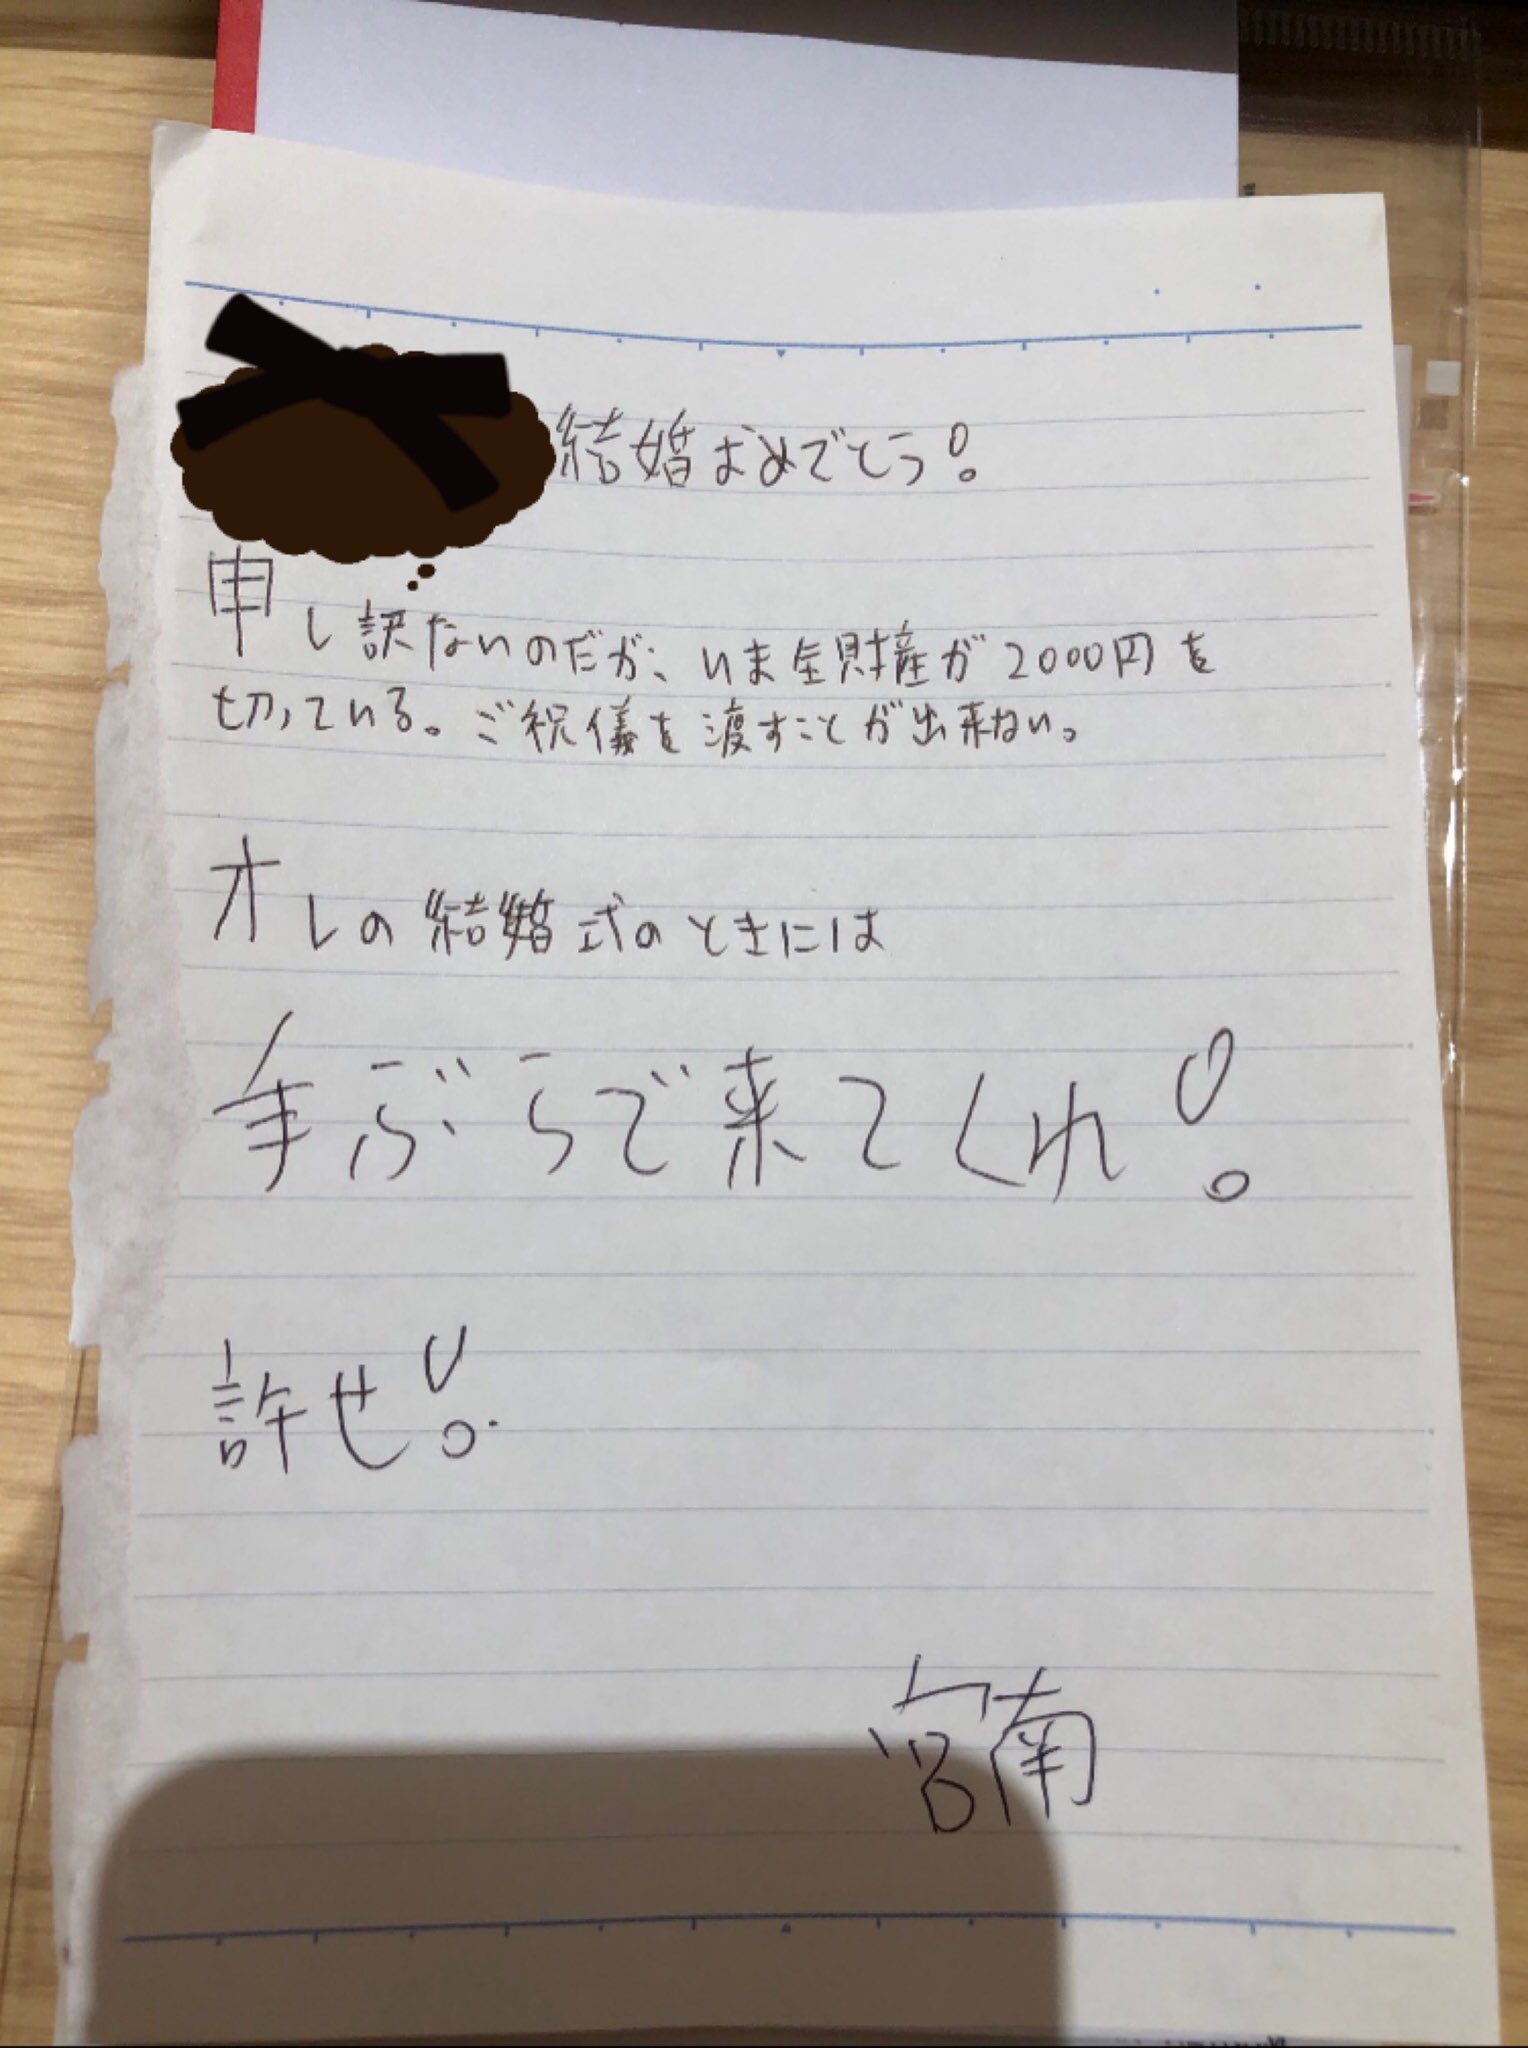 結婚おめでとう!
申し訳ないのだが、いま全財産が2000円を
切っている。ご祝儀を渡すことが出来ない。
オレの結婚式のときには
手ぶらで来てくれ!
許せ!
宮南